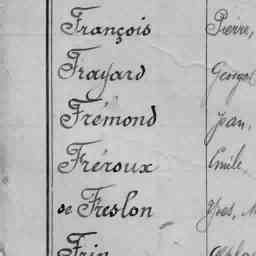 François Pierre,
Frayard Georges
Frémond Jean,
Fréroux Emile,
de Freslon Yves,
Frin